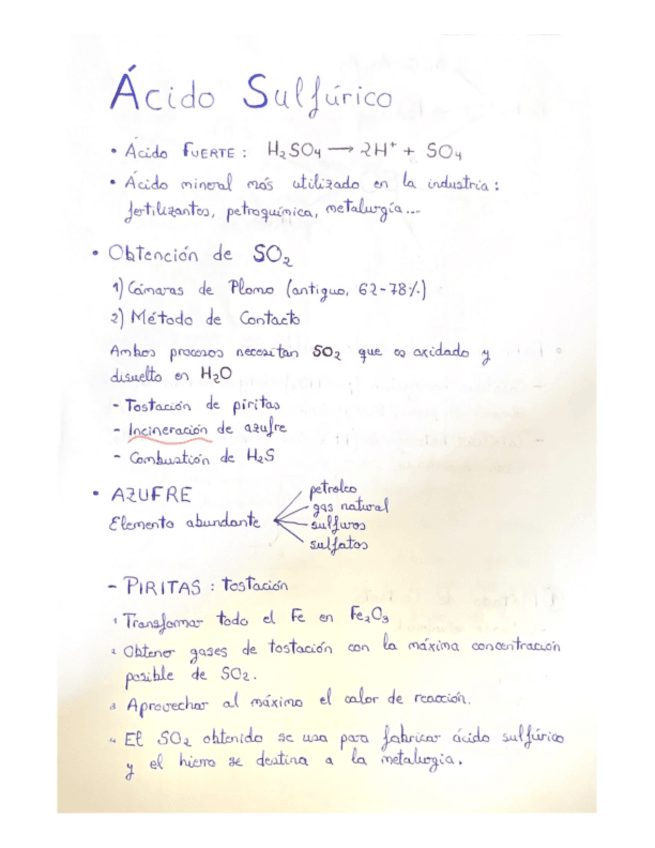 Ácido Sulfúrico
• Ácido FUERTE: H₂SO₄ → 2H⁺ + SO₄
• Ácido mineral más utilizado en la industria:
fertilizantes, petroquímica, metalurgía...
• Obtención de SO₂
1) Cámaras de Plomo (antiguo, 62-78%)
2) Método de Contacto
Ambos procesos necesitan SO₂ que es oxidado y
disuelto en H₂O
- Tostación de piritas
- Incineración de azufre
- Combustión de H₂S
• AZUFRE
Elemento abundante
petróleo
gas natural
sulfuros
sulfatos
- PIRITAS: tostación
1 Transformar todo el Fe en Fe₂O₃
2 Obtener gases de tostación con la máxima concentración
posible de SO₂.
3 Aprovechar al máximo el calor de reacción.
4 El SO₂ obtenido se usa para fabricar ácido sulfúrico
y el hierro se destina a la metalurgia.